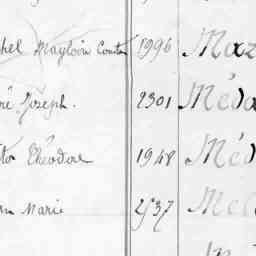 hel Magloire Constan 1996 Maz
ré Joseph. 2301 Méda
tor Théodore 1948 Méd
Marie 2537 Mel